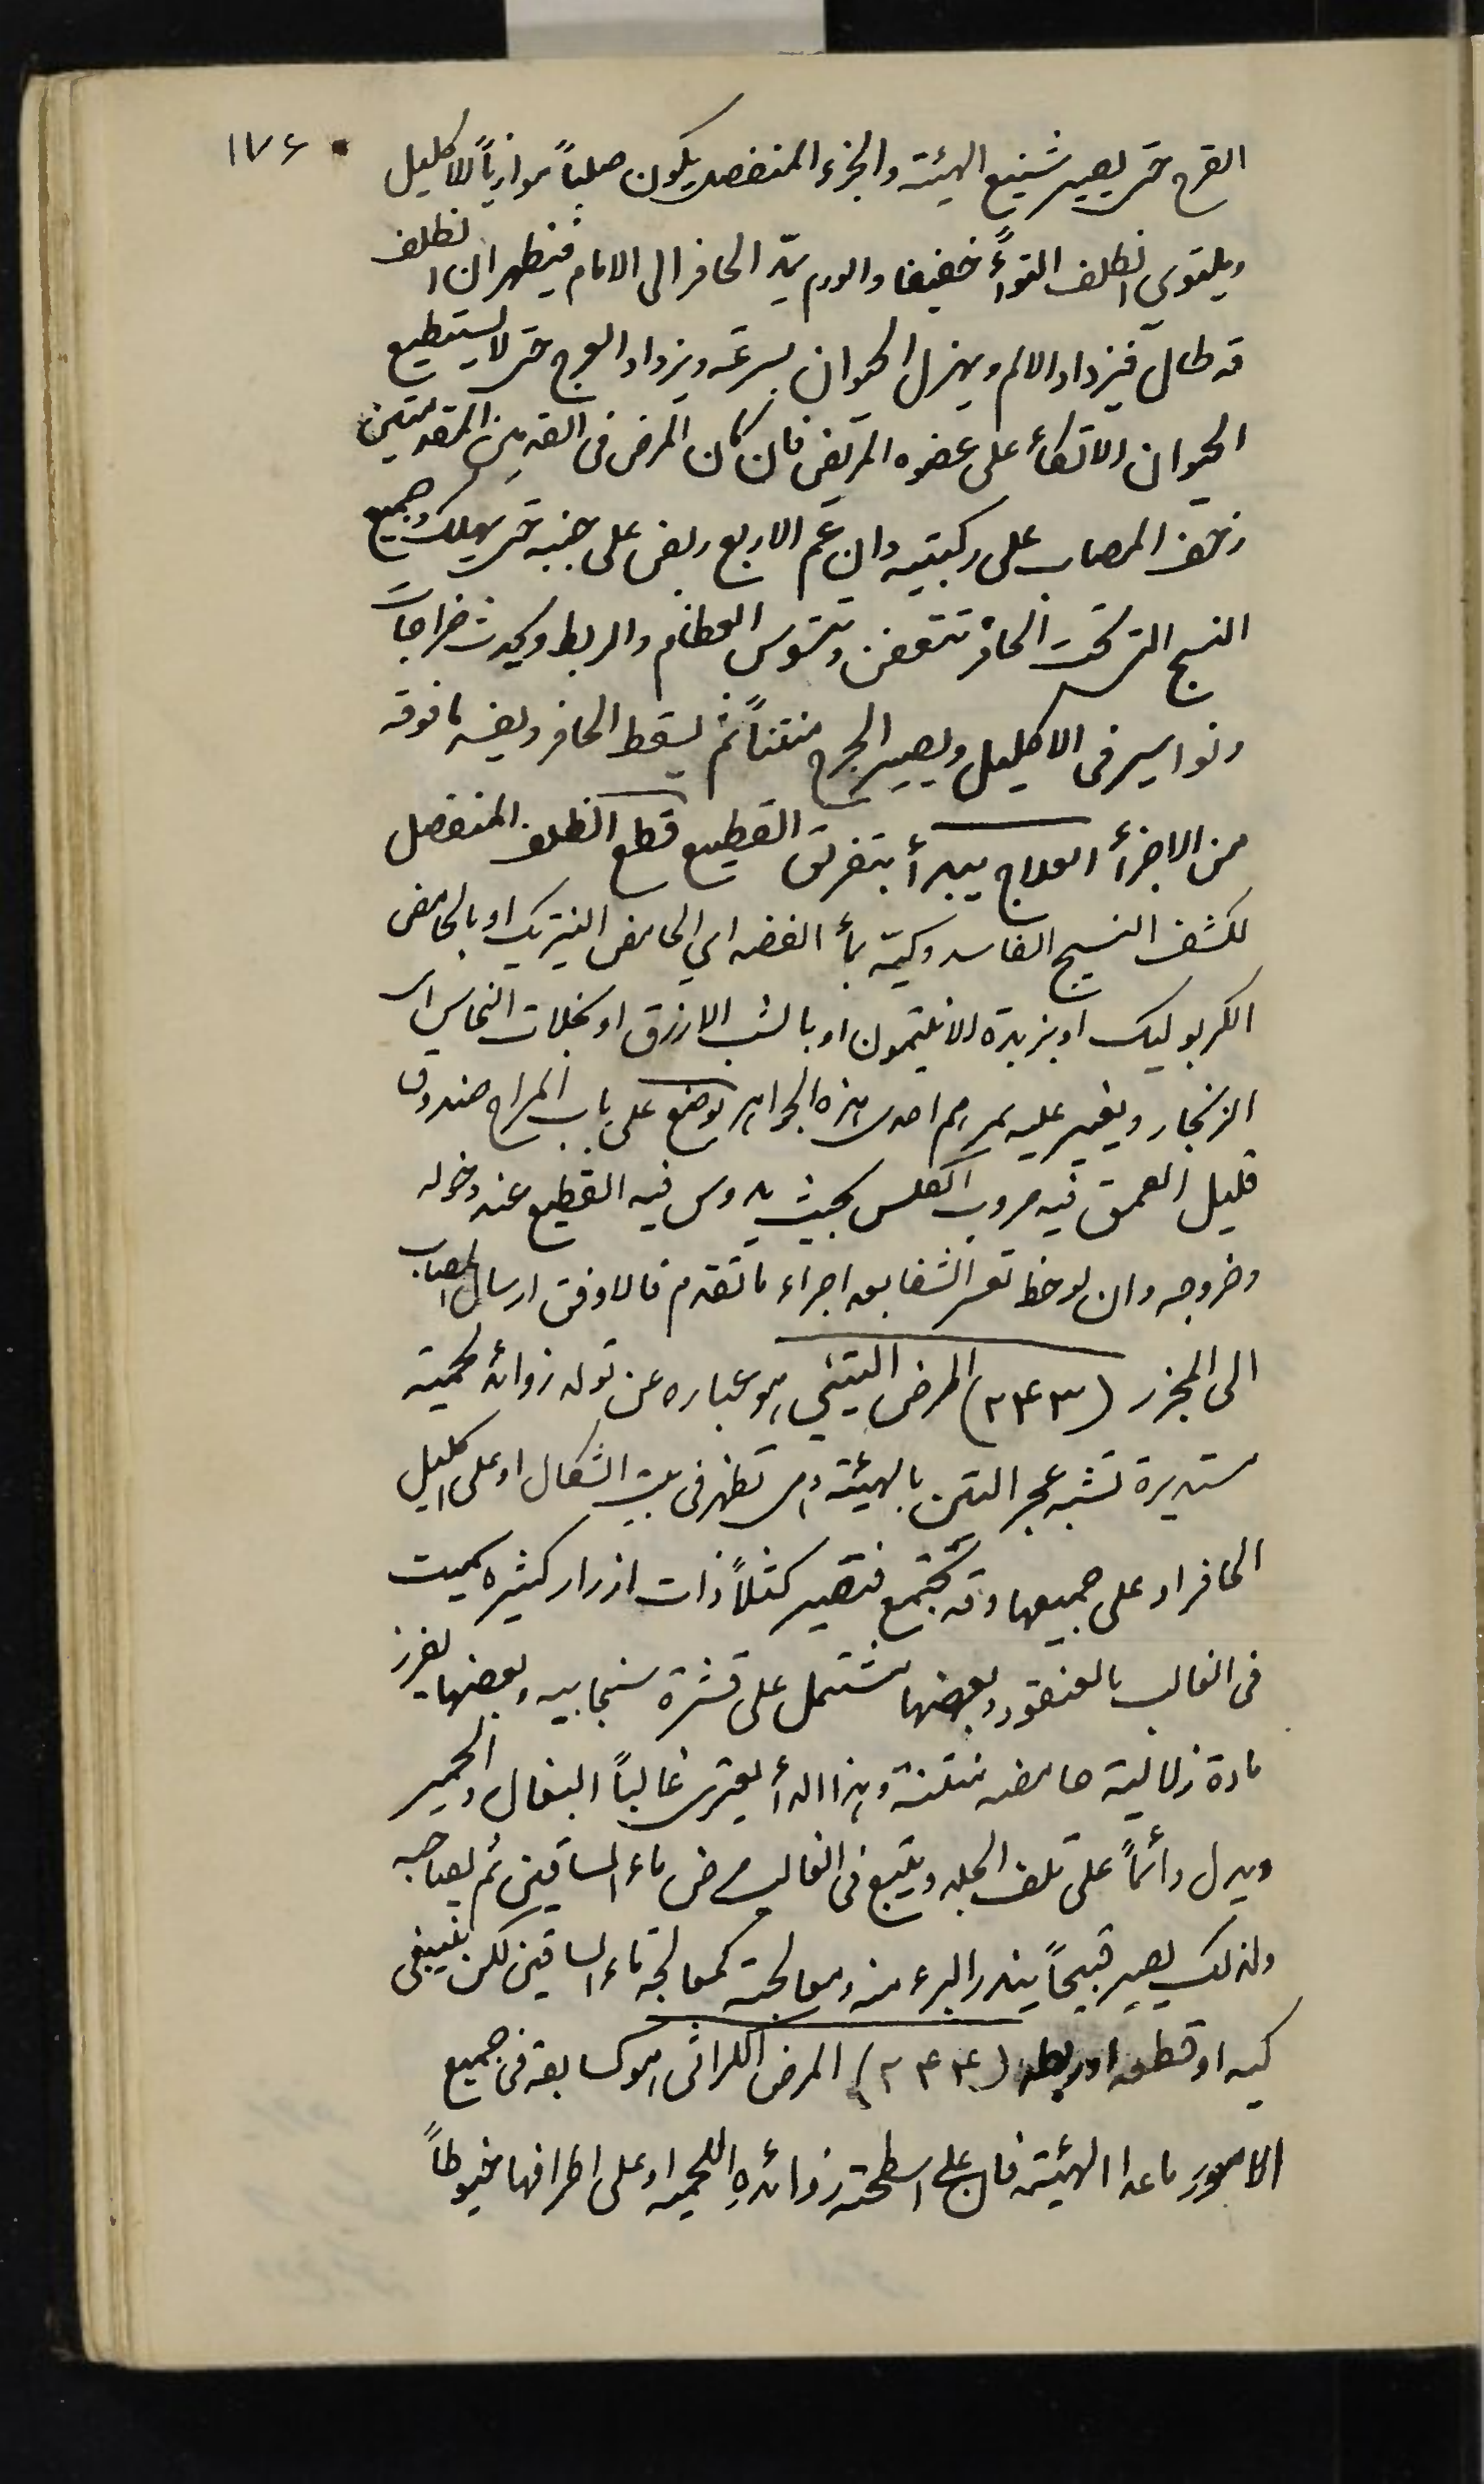 ١٧٤
القرح حتى يصير شنيع الهيئة والجزء المنفصل يكون صلباً موازياً للاكليل
ويلتوي الظلف التوأً خفيفا والورم يمد الحافر الى الامام فيظهر ان الظلف
قد طال فيزداد الالم ويهزل الحيوان بسرعه ويزداد العرج حتى لا يستطيع
الحيوان الاتكأ على عضوه المريض فان كان المرض فى القدمين المقدمتين
زحف المصاب على ركبتيه وان عم الاربع ربض على جنبه حتى يهلك وجميع
النسج التى تحت الحافر تتعفن وتتسوس العظام والربط ويحدث خراجات
ونواسير فى الاكليل ويصير الجرح منتناً ثم يسقط الحافر ويفسد ما فوقه
من الاجزأ العلاج يبدأ بتفريق القطيع قطع الظلف المنفصل
لكشف النسيج الفاسد وكيّه بمأ الفضه اي الحامض النيتريك او بالحامض
الكربوليك او بزبدة الانتيمون او بالشب الازرق او بخلات النحاس اى
الزنجار ويغير عليه بمرهم احدى هذه الجواهر يوضع على باب المراح صندوق
قليل العمق فيه مروب الكلس بحيث يدوس فيه القطيع عند دخوله
وخروجه وان لوحظ تعسر الشفا بعد اجراء ما تقدم فالاوفق ارسال المصاب
الى المجزر (٢٤٣) المرض التيني هو عباره عن تولد زوائد لحمية
مستديرة تشبه عجر التين بالهيئة وهى تظهر فى بيت الشكال او على اكليل
الحافر او على جميعها وقد تجتمع فتصير كتلاً ذات ازرار كثيره سميت
فى الغالب بالعنقود وبعضها مشتمل على قشرة سنجابيه وبعضها يفرز
مادة زلالية حامضه منتنة وهذا الدأ يعترى غالباً البغال والحمير
ويدل دائماً على تلف الجلد ويتبع فى الغالب مرض ماء الساقين ثم يصاحبه
ولذلك يصير قبيحاً يندر البرء منه ومعالجته كمعالجة ماء الساقين لكن ينبغي
كيه او قطعه او ربطه (٢٤٤) المرض الكراثى هو كسابقه فى جميع
الامور ماعدا الهيئة فان على اسطحة زوائدهِ اللحميه او على اطرافها خيوطاً